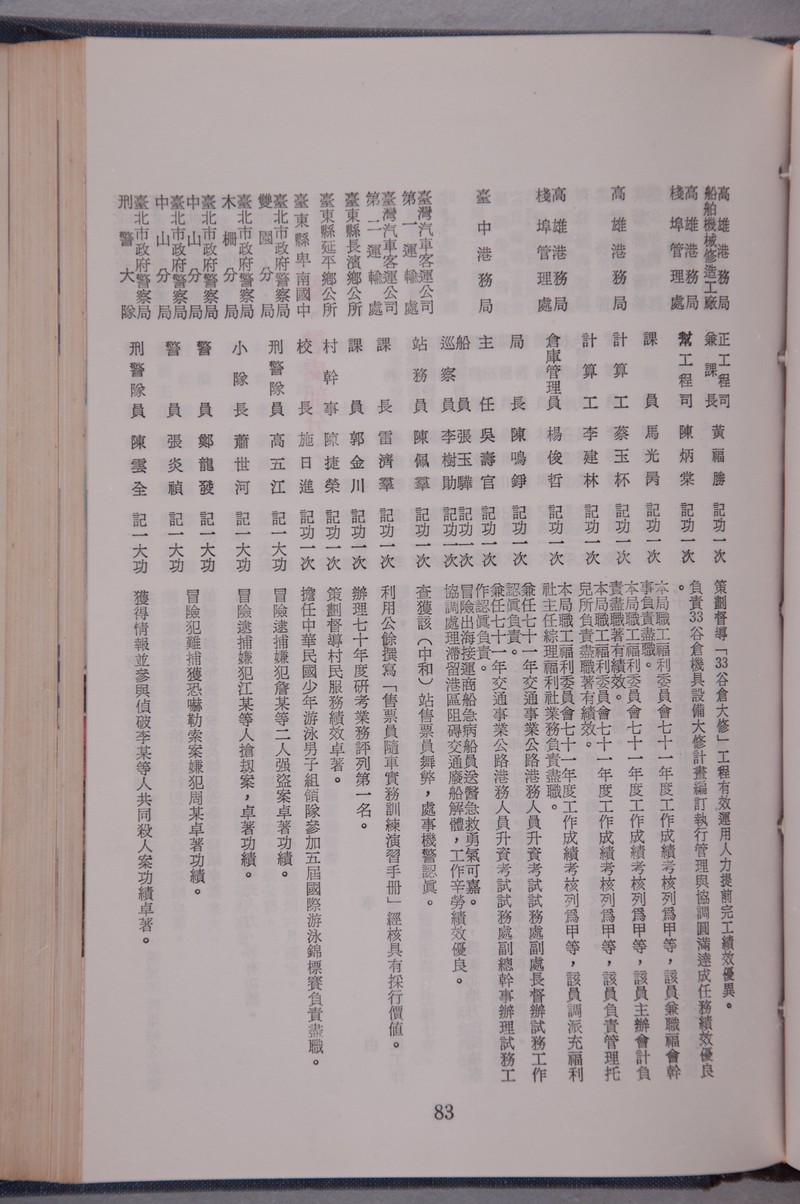 高雄港務局船舶機械修造工廠 正工程司兼課長 黃福勝 記功一次 策劃督導「33谷倉大修」工程有效運用人力提前完工績效優異。
高雄港務局棧埠管理處 幫工程司 陳炳棠 記功一次 負責33谷倉機具設備大修計畫編訂執行管理與協調圓滿達成任務績效優良。
課員 馬光 記功一次 本局職工福利委員會七十一年度工作成績考核列爲甲等，該員兼職福會幹事負責盡職。
高雄港務局 計算工 蔡玉杯 記功一次 本局職工福利委員會七十一年度工作成績考核列爲甲等，該員主辦會計負責盡職著有績效。
計算工 李建林 記功一次 本局職工福利委員會七十一年度工作成績考核列爲甲等，該員負責管理托兒所負責盡職著有績效。
高雄港務局棧埠管理處 倉庫管理員 楊俊哲 記功一次 本局職工福利委員會七十一年度工作成績考核列爲甲等，該員調派充福利社主任綜理福利社業務負責盡職。
局長 陳鳴錚 記功一次 兼任七十一年交通事業公路港務人員升資考試試務處副處長督辦試務工作認眞負責。
臺中港務局 主任 吳壽官 記功一次 兼任七十一年交通事業公路港務人員升資考試試務處副總幹事辦理試務工作認眞負責。
船員 張玉驊 記功一次 冒險出海接運商船急病船員送醫急救勇氣可嘉。
巡察員 李樹助 記功一次 協調處理滯留港區阻礙交通廢船解體，工作辛勞績效優良。
臺灣汽車客運公司第一運輸處 站務員 陳佩羣 記功一次 查獲該（中和）站售票員舞弊，處事機警認眞。
臺灣汽車客運公司第二運輸處 課長 雷濟羣 記功一次 利用公餘撰寫「售票員隨車實務訓練演習手冊」經核具有採行價值。
臺東縣長濱鄉公所 課員 郭金川 記功一次 辦理七十年度研考業務評列第一名。
臺東縣延平鄉公所 村幹事 陳捷榮 記功一次 策劃督導村民服務績效卓著。
臺東縣卑南國中 校長 施日進 記功一次 擔任中華民國少年游泳男子組領隊參加五屆國際游泳錦標賽負責盡職。
臺北市政府警察局雙園分局 刑警隊員 高五江 記一大功 冒險逮捕嫌犯詹某等二人强盜案卓著功績。
臺北市政府警察局木柵分局 小隊長 蕭世河 記一大功 冒險逮捕嫌犯江某等人搶刼案，卓著功績。
臺北市政府警察局中山分局 警員 鄭龍發 記一大功 冒險犯難捕獲恐嚇勒索案嫌犯周某卓著功績。
臺北市政府警察局中山分局 警員 張炎禎 記一大功
臺北市政府警察局刑警大隊 刑警隊員 陳雲全 記一大功 獲得情報並參與偵破李某等人共同殺人案功績卓著。
83